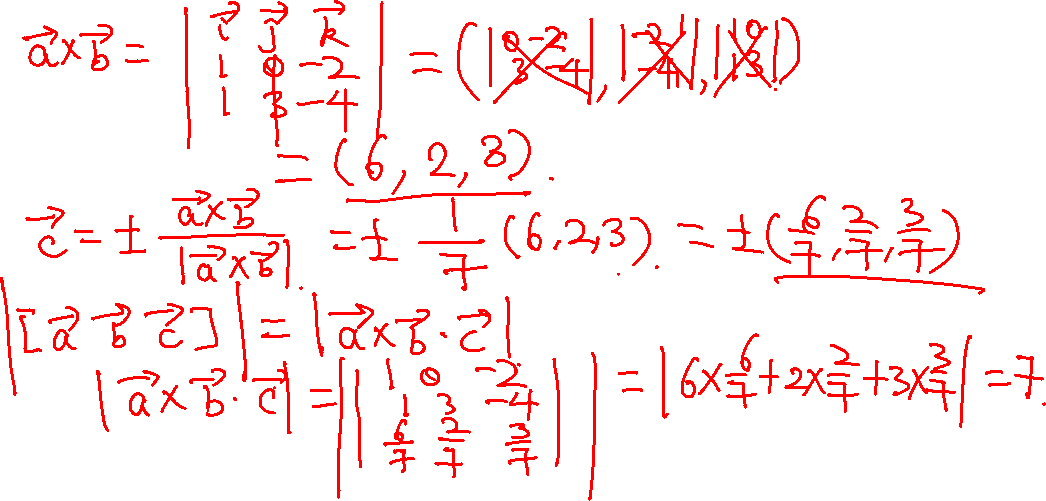 $\vec{a}\times\vec{b} = \begin{vmatrix} \vec{i} & \vec{j} & \vec{k} \\ 1 & 0 & -2 \\ 1 & 3 & -4 \end{vmatrix} = \left(\begin{vmatrix} 0 & -2 \\ 3 & -4 \end{vmatrix}, \begin{vmatrix} -2 & 1 \\ -4 & 1 \end{vmatrix}, \begin{vmatrix} 1 & 0 \\ 1 & 3 \end{vmatrix}\right)$
$= (6, 2, 3).$
$\vec{c} = \pm \frac{\vec{a}\times\vec{b}}{|\vec{a}\times\vec{b}|}. = \pm \frac{1}{7} (6, 2, 3). = \pm \left(\frac{6}{7}, \frac{2}{7}, \frac{3}{7}\right)$
$\left|[\vec{a}\ \vec{b}\ \vec{c}]\right| = |\vec{a}\times\vec{b}\cdot\vec{c}|$
$|\vec{a}\times\vec{b}\cdot\vec{c}| = \left|\begin{vmatrix} 1 & 0 & -2 \\ 1 & 3 & -4 \\ \frac{6}{7} & \frac{2}{7} & \frac{3}{7} \end{vmatrix}\right| = \left|6\times\frac{6}{7} + 2\times\frac{2}{7} + 3\times\frac{3}{7}\right| = 7.$